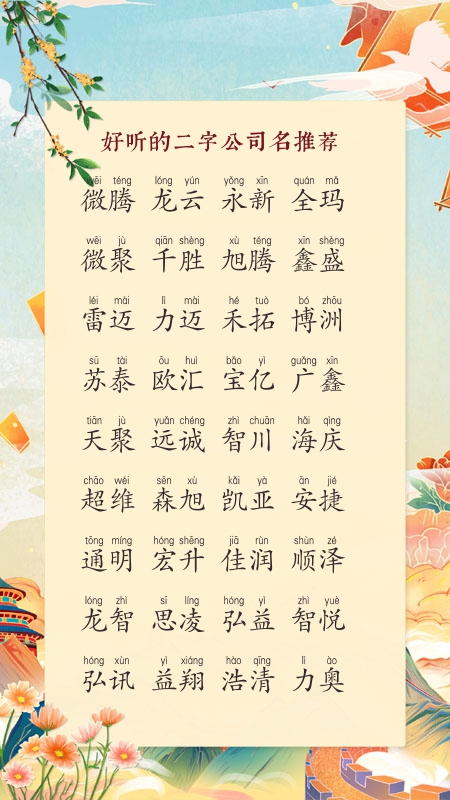 好听的二字公司名推荐
wēi téng lóng yún yǒng xīn quán mǎ
微腾 龙云 永新 全玛
wēi jù qiān shèng xù téng xīn shèng
微聚 千胜 旭腾 鑫盛
léi mài lì mài hé tuò bó zhōu
雷迈 力迈 禾拓 博洲
sū tài ōu huì bǎo yì guǎng xīn
苏泰 欧汇 宝亿 广鑫
tiān jù yuǎn chéng zhì chuān hǎi qìng
天聚 远诚 智川 海庆
chāo wéi sēn xù kǎi yà ān jié
超维 森旭 凯亚 安捷
tōng míng hóng shēng jiā rùn shùn zé
通明 宏升 佳润 顺泽
lóng zhì sī líng hóng yì zhì yuè
龙智 思凌 弘益 智悦
hóng xùn yì xiáng hào qīng lì ào
弘讯 益翔 浩清 力奥